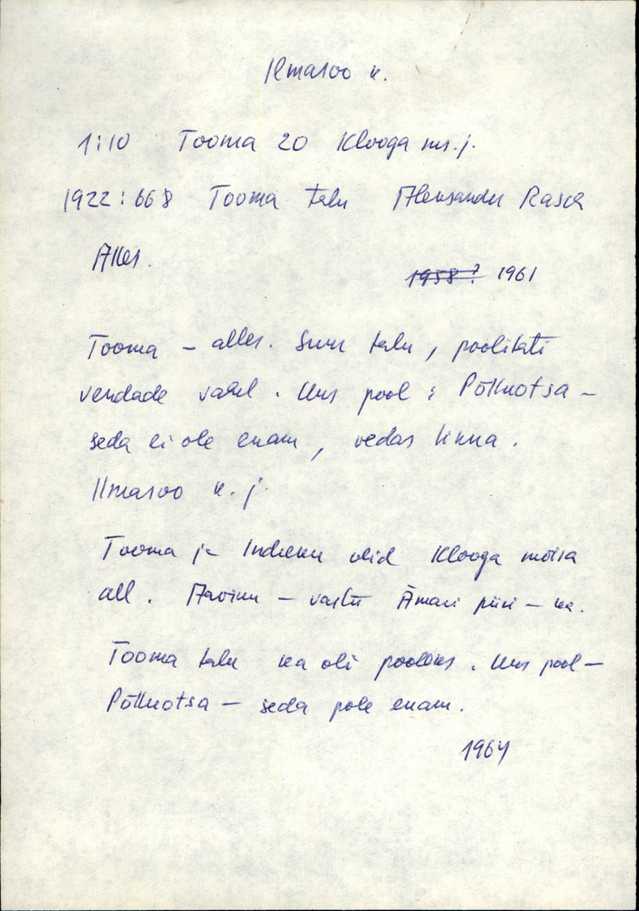 Ilmasoo k.
1:10 Tooma 20 Klooga ms.j.
1922:668 Tooma talu Aleksander Rasch
Alles.
1958? 1961
Tooma – alles. Suur talu, poolitati
vendade vahel. Uus pool: Põlluotsa –
seda ei ole enam, vedas linna.
Ilmasoo k. j.
Tooma ja Indreku olid Klooga mõisa
all. – vastu Ämari piiri – ka.
Tooma talu ka oli pooleks. Uus pool –
Põlluotsa – seda pole enam.
1964